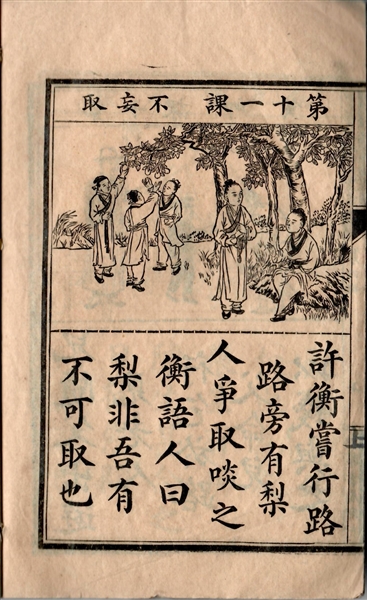 第十一課 不妄取
許衡嘗行路
路旁有梨
人爭取啖之
衡語人曰
梨非吾有
不可取也